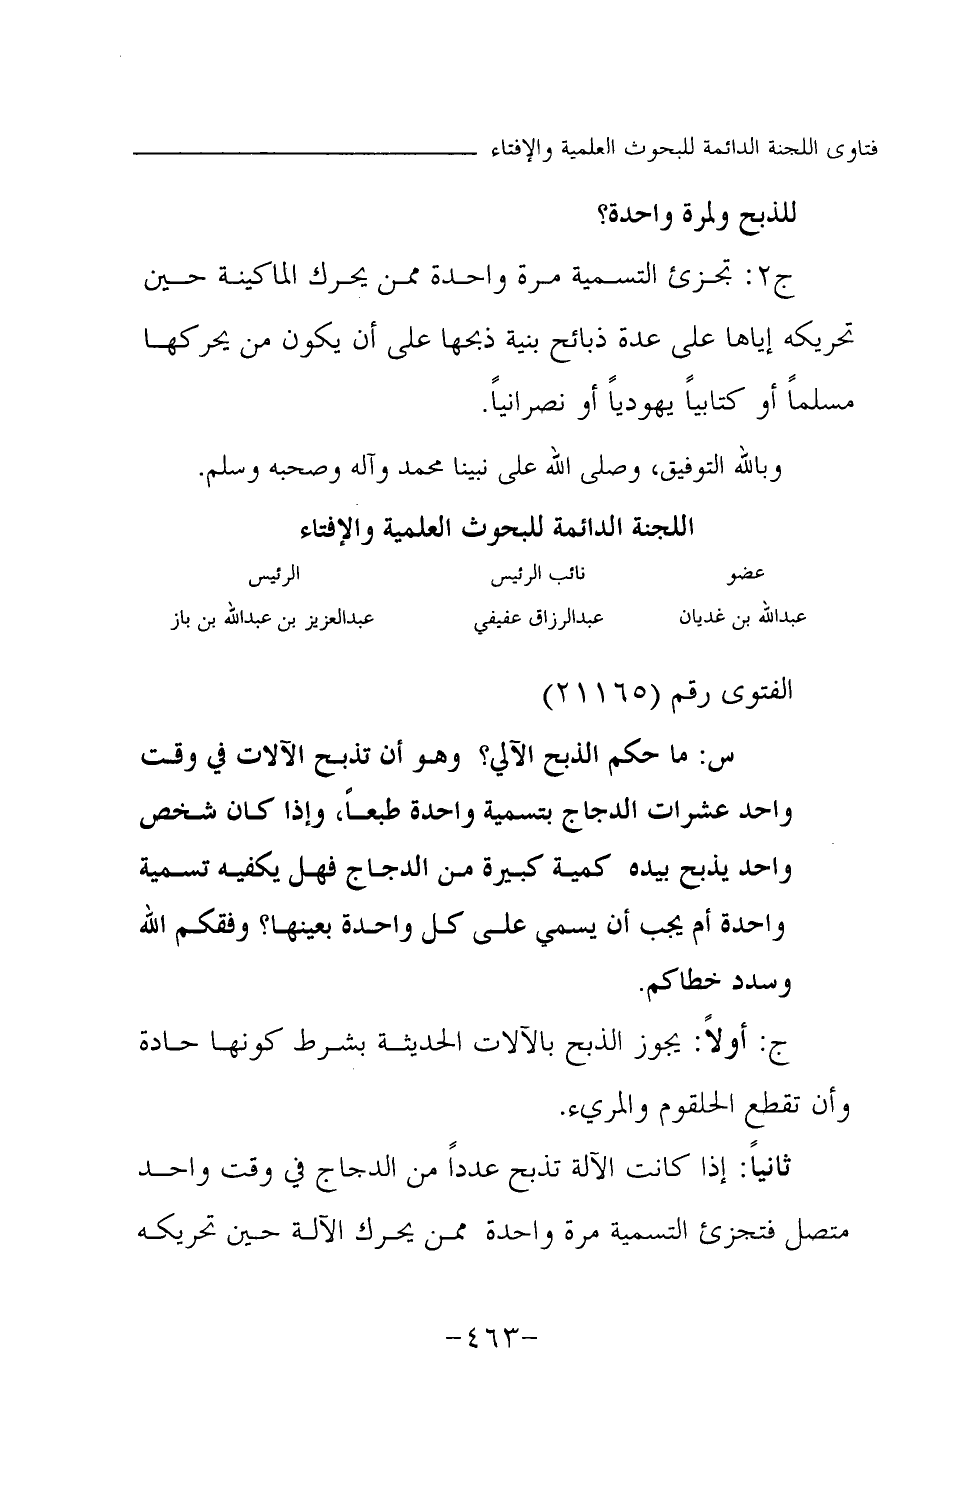 فتاوى اللجنة الدائمة للبحوث العلمية والإفتاء
للذبح ولمرة واحدة؟
ج٢: تجزئ التسمية مرة واحدة ممن يحرك الماكينة حين
تحريكه إياها على عدة ذبائح بنية ذبحها على أن يكون من يحركها
مسلماً أو كتابياً يهودياً أو نصرانياً.
وبالله التوفيق، وصلى الله على نبينا محمد وآله وصحبه وسلم.
اللجنة الدائمة للبحوث العلمية والإفتاء
عضو نائب الرئيس الرئيس
عبدالله بن غديان عبدالرزاق عفيفي عبدالعزيز بن عبدالله بن باز
الفتوى رقم (٢١١٦٥)
س: ما حكم الذبح الآلي؟ وهو أن تذبح الآلات في وقت
واحد عشرات الدجاج بتسمية واحدة طبعاً، وإذا كان شخص
واحد يذبح بيده كمية كبيرة من الدجاج فهل يكفيه تسمية
واحدة أم يجب أن يسمي على كل واحدة بعينها؟ وفقكم الله
وسدد خطاكم.
ج: أولاً: يجوز الذبح بالآلات الحديثة بشرط كونها حادة
وأن تقطع الحلقوم والمريء.
ثانياً: إذا كانت الآلة تذبح عدداً من الدجاج في وقت واحد
متصل فتجزئ التسمية مرة واحدة ممن يحرك الآلة حين تحريكه
-٤٦٣-